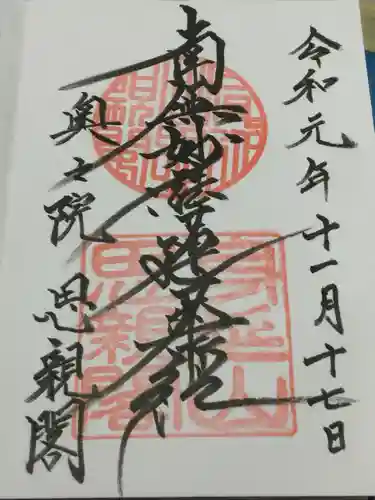 令和元年十一月十七日
南無妙法蓮華経
奥之院 思親閣
身延山
思親閣